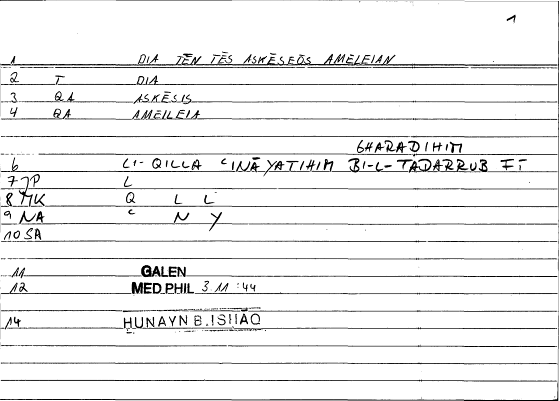 1
1 DIA TĒN TĒS ASKĒSEŌS AMELEIAN
2 T DIA
3 QA ASKĒSIS
4 QA AMEILEIA
GHARADIHIM
6 LI-QILLA ʿINĀYATIHIM BI-L-TADARRUB FĪ
7 JP L
8 MK Q L L
9 NA ʿ N Y
10 SA
11 GALEN
12 MED.PHIL 3 11 :44
14 HUNAYN B.ISHĀQ